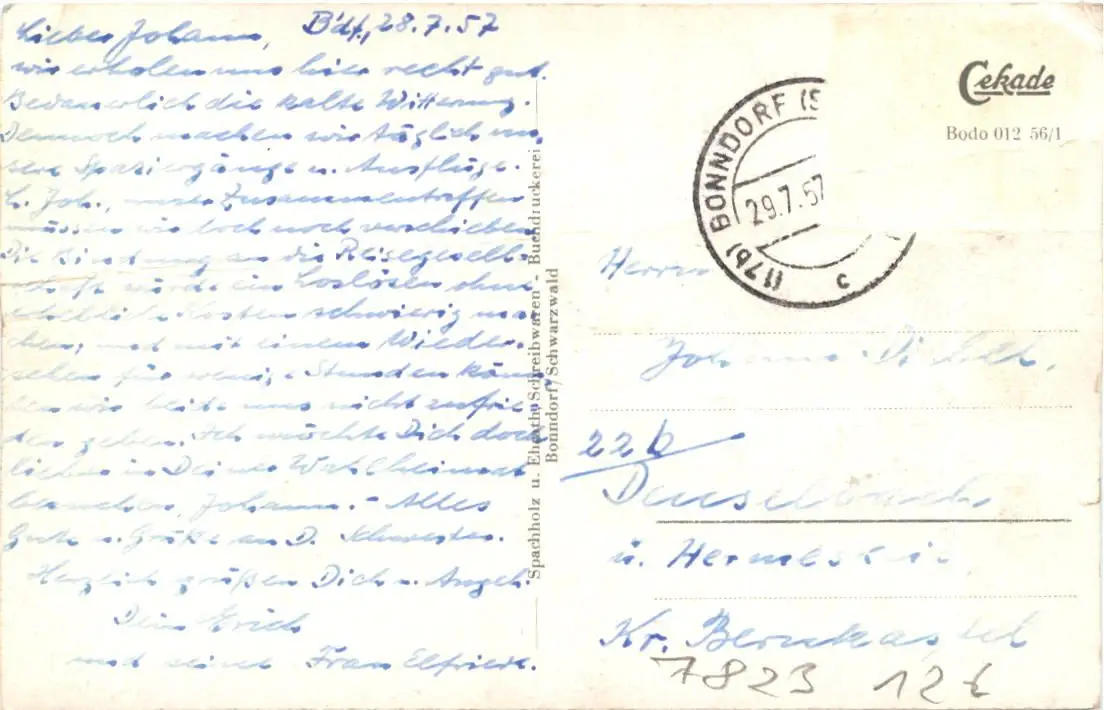 Lieber Johann, B'df., 28.7.57
wir erholen uns hier recht gut.
Bedauerlich die kalte Witterung.
Dennoch machen wir täglich un-
sere Spaziergänge u. Ausflüge.
L. Joh., unser Zusammentreffen
müssen wir doch noch verschieben.
Die Bindung an die Reisegesell-
schaft würde ein Loslösen ohne
erhebliche Kosten schwierig ma-
chen, und mit einem Wieder-
sehen für wenige Stunden kön-
nen wir beide uns nicht zufrie-
den geben. Ich möchte Dich doch
lieber in Deiner Wahlheimat
besuchen, Johann. - Alles
Gute u. Grüße an D. Schwester.
Herzlich grüßen Dich u. Angeh.
Dein Erich
und seine Frau Elfriede.
Spachholz u. Eherath, Schreibwaren - Buchdruckerei
Bonndorf/Schwarzwald
Cekade
Bodo 012 56/1
(17b) BONNDORF (S
29.7.57
c
Herrn
Johann
22b
Deuselbach
ü. Hermeskeil
Kr. Bernkastel
7823 12€